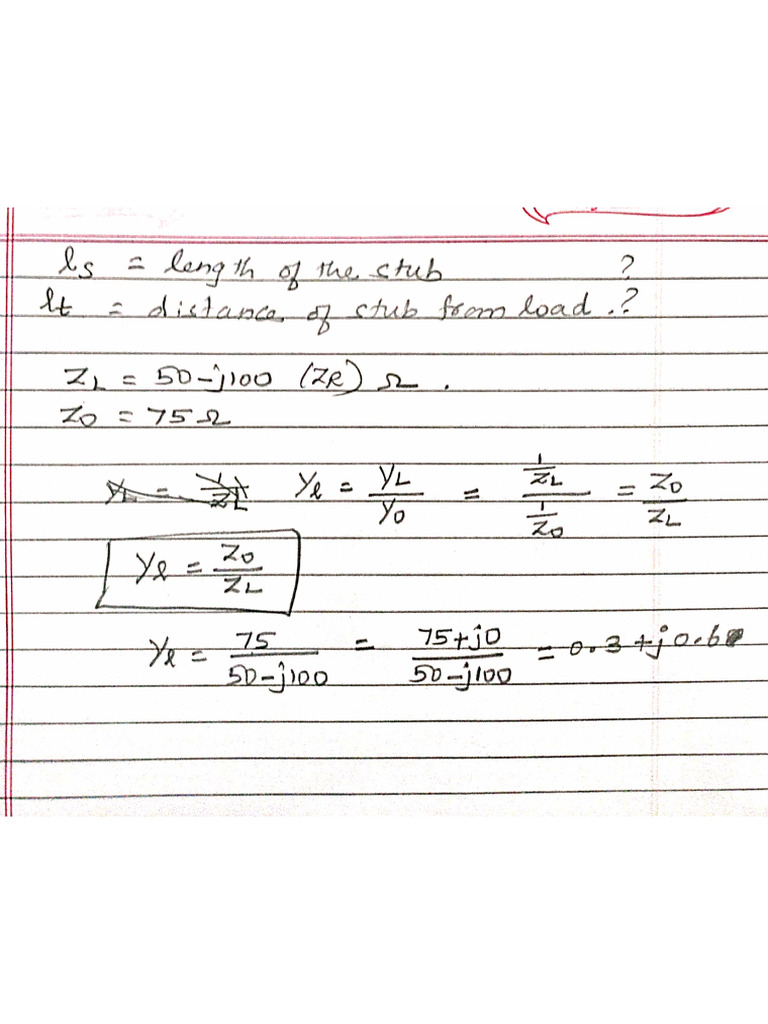 ls = length of the stub ?
lt = distance of stub from load .?
ZL = 50-j100 (ZR) Ω .
Z0 = 75Ω
yL = 1/ZL Yl = YL/Y0 = (1/ZL)/(1/Z0) = Z0/ZL
Yl = Z0/ZL
Yl = 75/(50-j100) = (75+j0)/(50-j100) = 0.3+j0.6